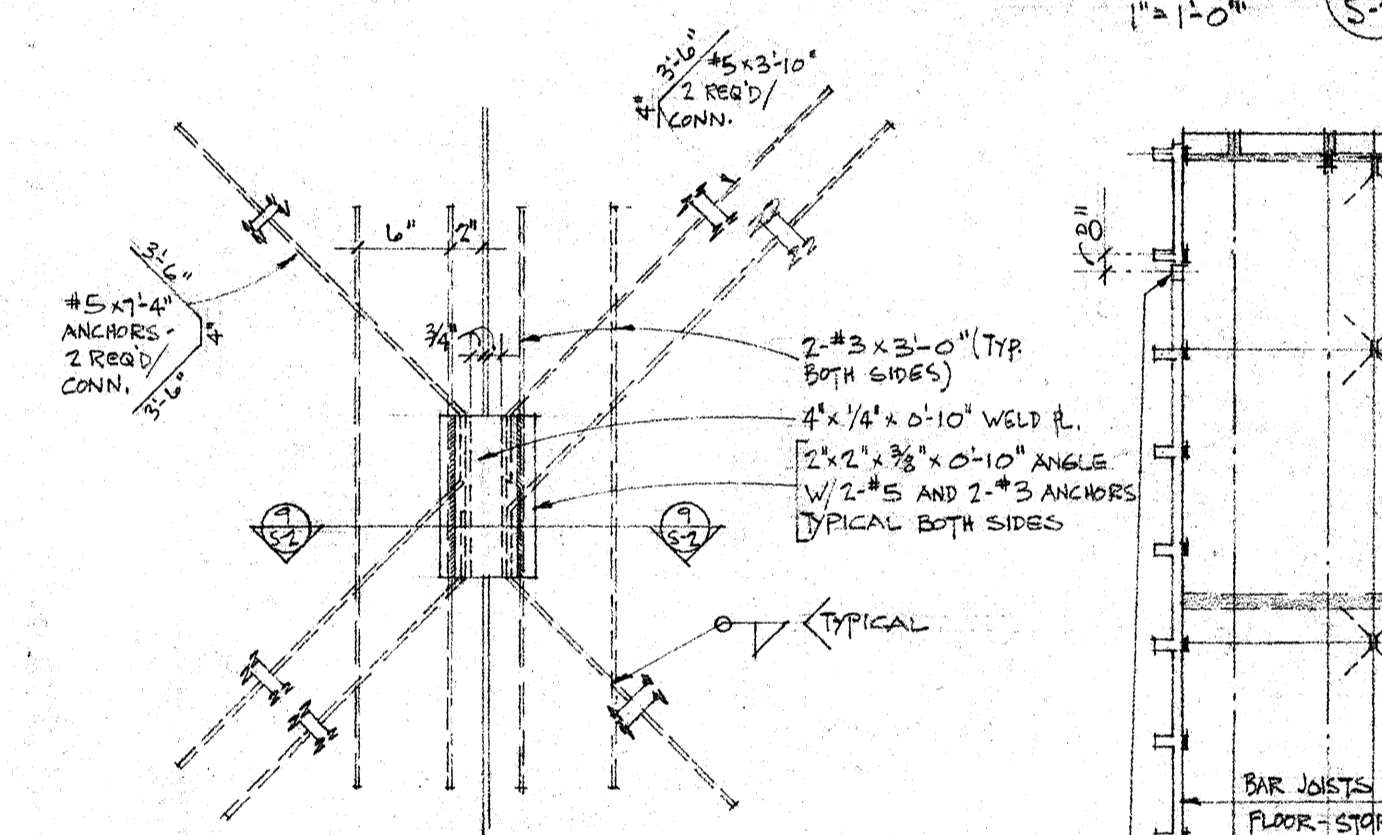 1" = 1'-0"
3'-6"
4"
#5 x 3'-10"
2 REQ'D/
CONN.
6"
2"
3'-6"
4"
3'-6"
#5 x 7'-4"
ANCHORS -
2 REQ'D/
CONN.
3/4"
2-#3 x 3'-0" (TYP.
BOTH SIDES)
4" x 1/4" x 0'-10" WELD PL.
2" x 2" x 3/8" x 0'-10" ANGLE
W/ 2-#5 AND 2-#3 ANCHORS
TYPICAL BOTH SIDES
9
S-2
9
S-2
TYPICAL
BAR JOISTS
FLOOR -